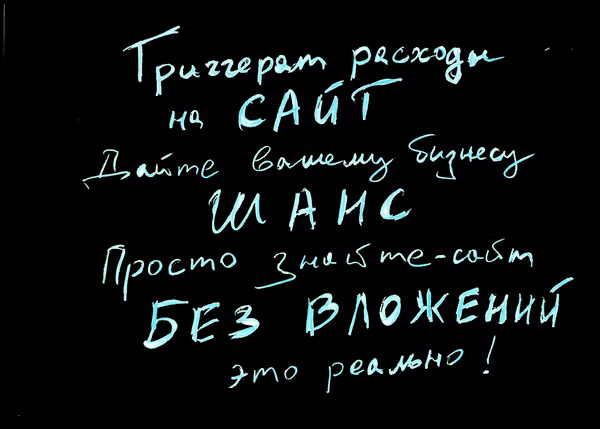 Триггерат расходы
на САЙТ
Дайте вашему бизнесу
ШАНС
Просто знайте-сайт
БЕЗ ВЛОЖЕНИЙ
это реально!